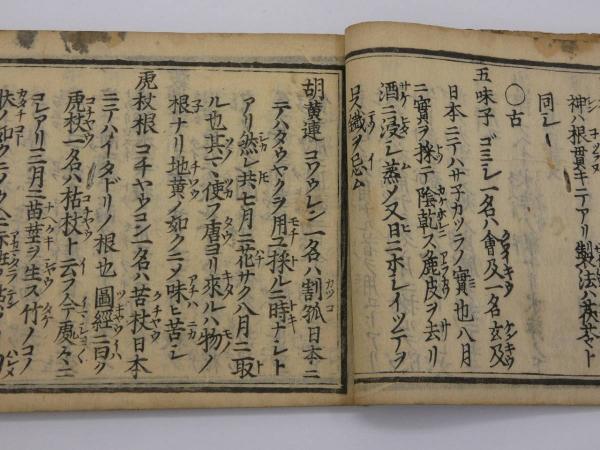 神ハ根貫キニテアリ製法ハ茯苓ト
同シ
〇古
五味子 ゴミシ一名ハ會及一名玄及
日本ニテハサ子カツラノ實也八月
ニ實ヲ採テ陰乾ス麁皮ヲ去リ
酒ニ浸シ蒸メ又曰ニホレイツテヲ
鐵ヲ忌ム
胡黄蓮 コワウレン一名ハ割孤日本ニ
テハタウヤクヲ用ユ採ルニ時ナシト
アリ然レ共七月ニ花サク八月ニ取
ル也其マヽ使フ唐ヨリ來ルハ物ノ
根ナリ地黄ノ如クニメ味ヒ苦シ
虎杖根 コチヤウコン一名ハ苦杖日本
ニテハイタドリノ根也圖經ニ曰ク
虎杖一名ハ枯杖ト云フ今處々ニ
コレアリ三月ニ苗葉ヲ生ス竹ノコノ
状ノ如クニメ